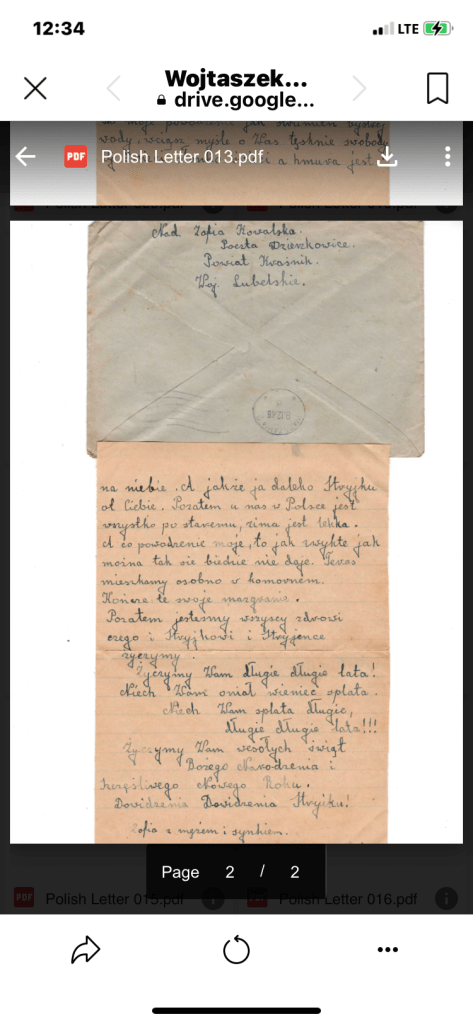 12:34
LTE
Wojtaszek...
drive.google...
Polish Letter 013.pdf
PDF
wody, wciąż myślę o Was tęsknię swobody
a hmura jest
Nad. Zofia Kowalska.
Poczta Dzierzkowice.
Powiat Kraśnik.
Woj. Lubelskie.
na niebie. A jakże ja daleko Stryjku
od Ciebie. Pozatem u nas w Polsce jest
wszystko po staremu, zima jest lekka.
A co powodzenie moje, to jak zwykle jak
można tak się biednie nie daje. Teraz
mieszkamy osobno w komornem.
Kończę te swoje
Pozatem jesteśmy wszyscy zdrowi
czego i Stryjkowi i Stryjence
życzymy.
Życzymy Wam długie długie lata!
Niech Wam wieniec splata.
Niech Wam splata długie,
długie długie lata!!!
Życzymy Wam wesołych świąt
Bożego Narodzenia i
Szczęśliwego Nowego Roku.
Dowidzenia Dowidzenia Stryjku!
Zofia z mężem i synkiem.
Page 2 / 2
PDF Polish Letter 015.pdf
PDF Polish Letter 016.pdf